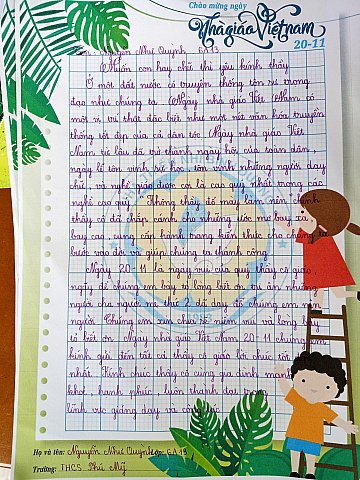 Chào mừng ngày
Nhà giáo Việt nam
20-11
Tên: Nguyễn Như Quỳnh 6A13
Muốn con hay chữ thì yêu kính thầy
Ở một đất nước có truyền thống tôn sư trọng
đạo như chúng ta. Ngày nhà giáo Việt Nam có
một vị trí thật đặc biệt như một nét văn hóa truyền
thống tốt đẹp của cả dân tộc. Ngày nhà giáo Việt
Nam từ lâu đã trở thành ngày hội của toàn dân,
ngày lễ tôn vinh sự học, tôn vinh những người dạy
chữ, và nghề giáo được coi là cao quý nhất trong các
nghề cao quý. Không thầy đố mày làm nên chính
thầy cô đã chắp cánh cho những ước mơ bay xa,
bay cao, cung cấp hành trang kiến thức cho chúng ta
bước vào đời và giúp chúng ta thành công
Ngày 20 11 là ngày vui của quý thầy cô giáo,
ngày để chúng em bày tỏ lòng biết ơn tri ân những
người cho người mẹ thứ 2 đã dạy dỗ chúng em nên
người. Chúng em xin chia sẻ niềm vui và lòng bày
tỏ biết ơn. Ngày nhà giáo Việt Nam 20 11 chúng em
kính gửi đến tất cả thầy cô giáo lời chúc tốt
nhất. Kính chúc thầy cô cùng gia đình mạnh
khỏe, hạnh phúc, luôn thành đạt trong
lĩnh vực giảng dạy và công tác
Họ và tên: Nguyễn Như Quỳnh Lớp: 6A13
Trường: THCS Phú Mỹ